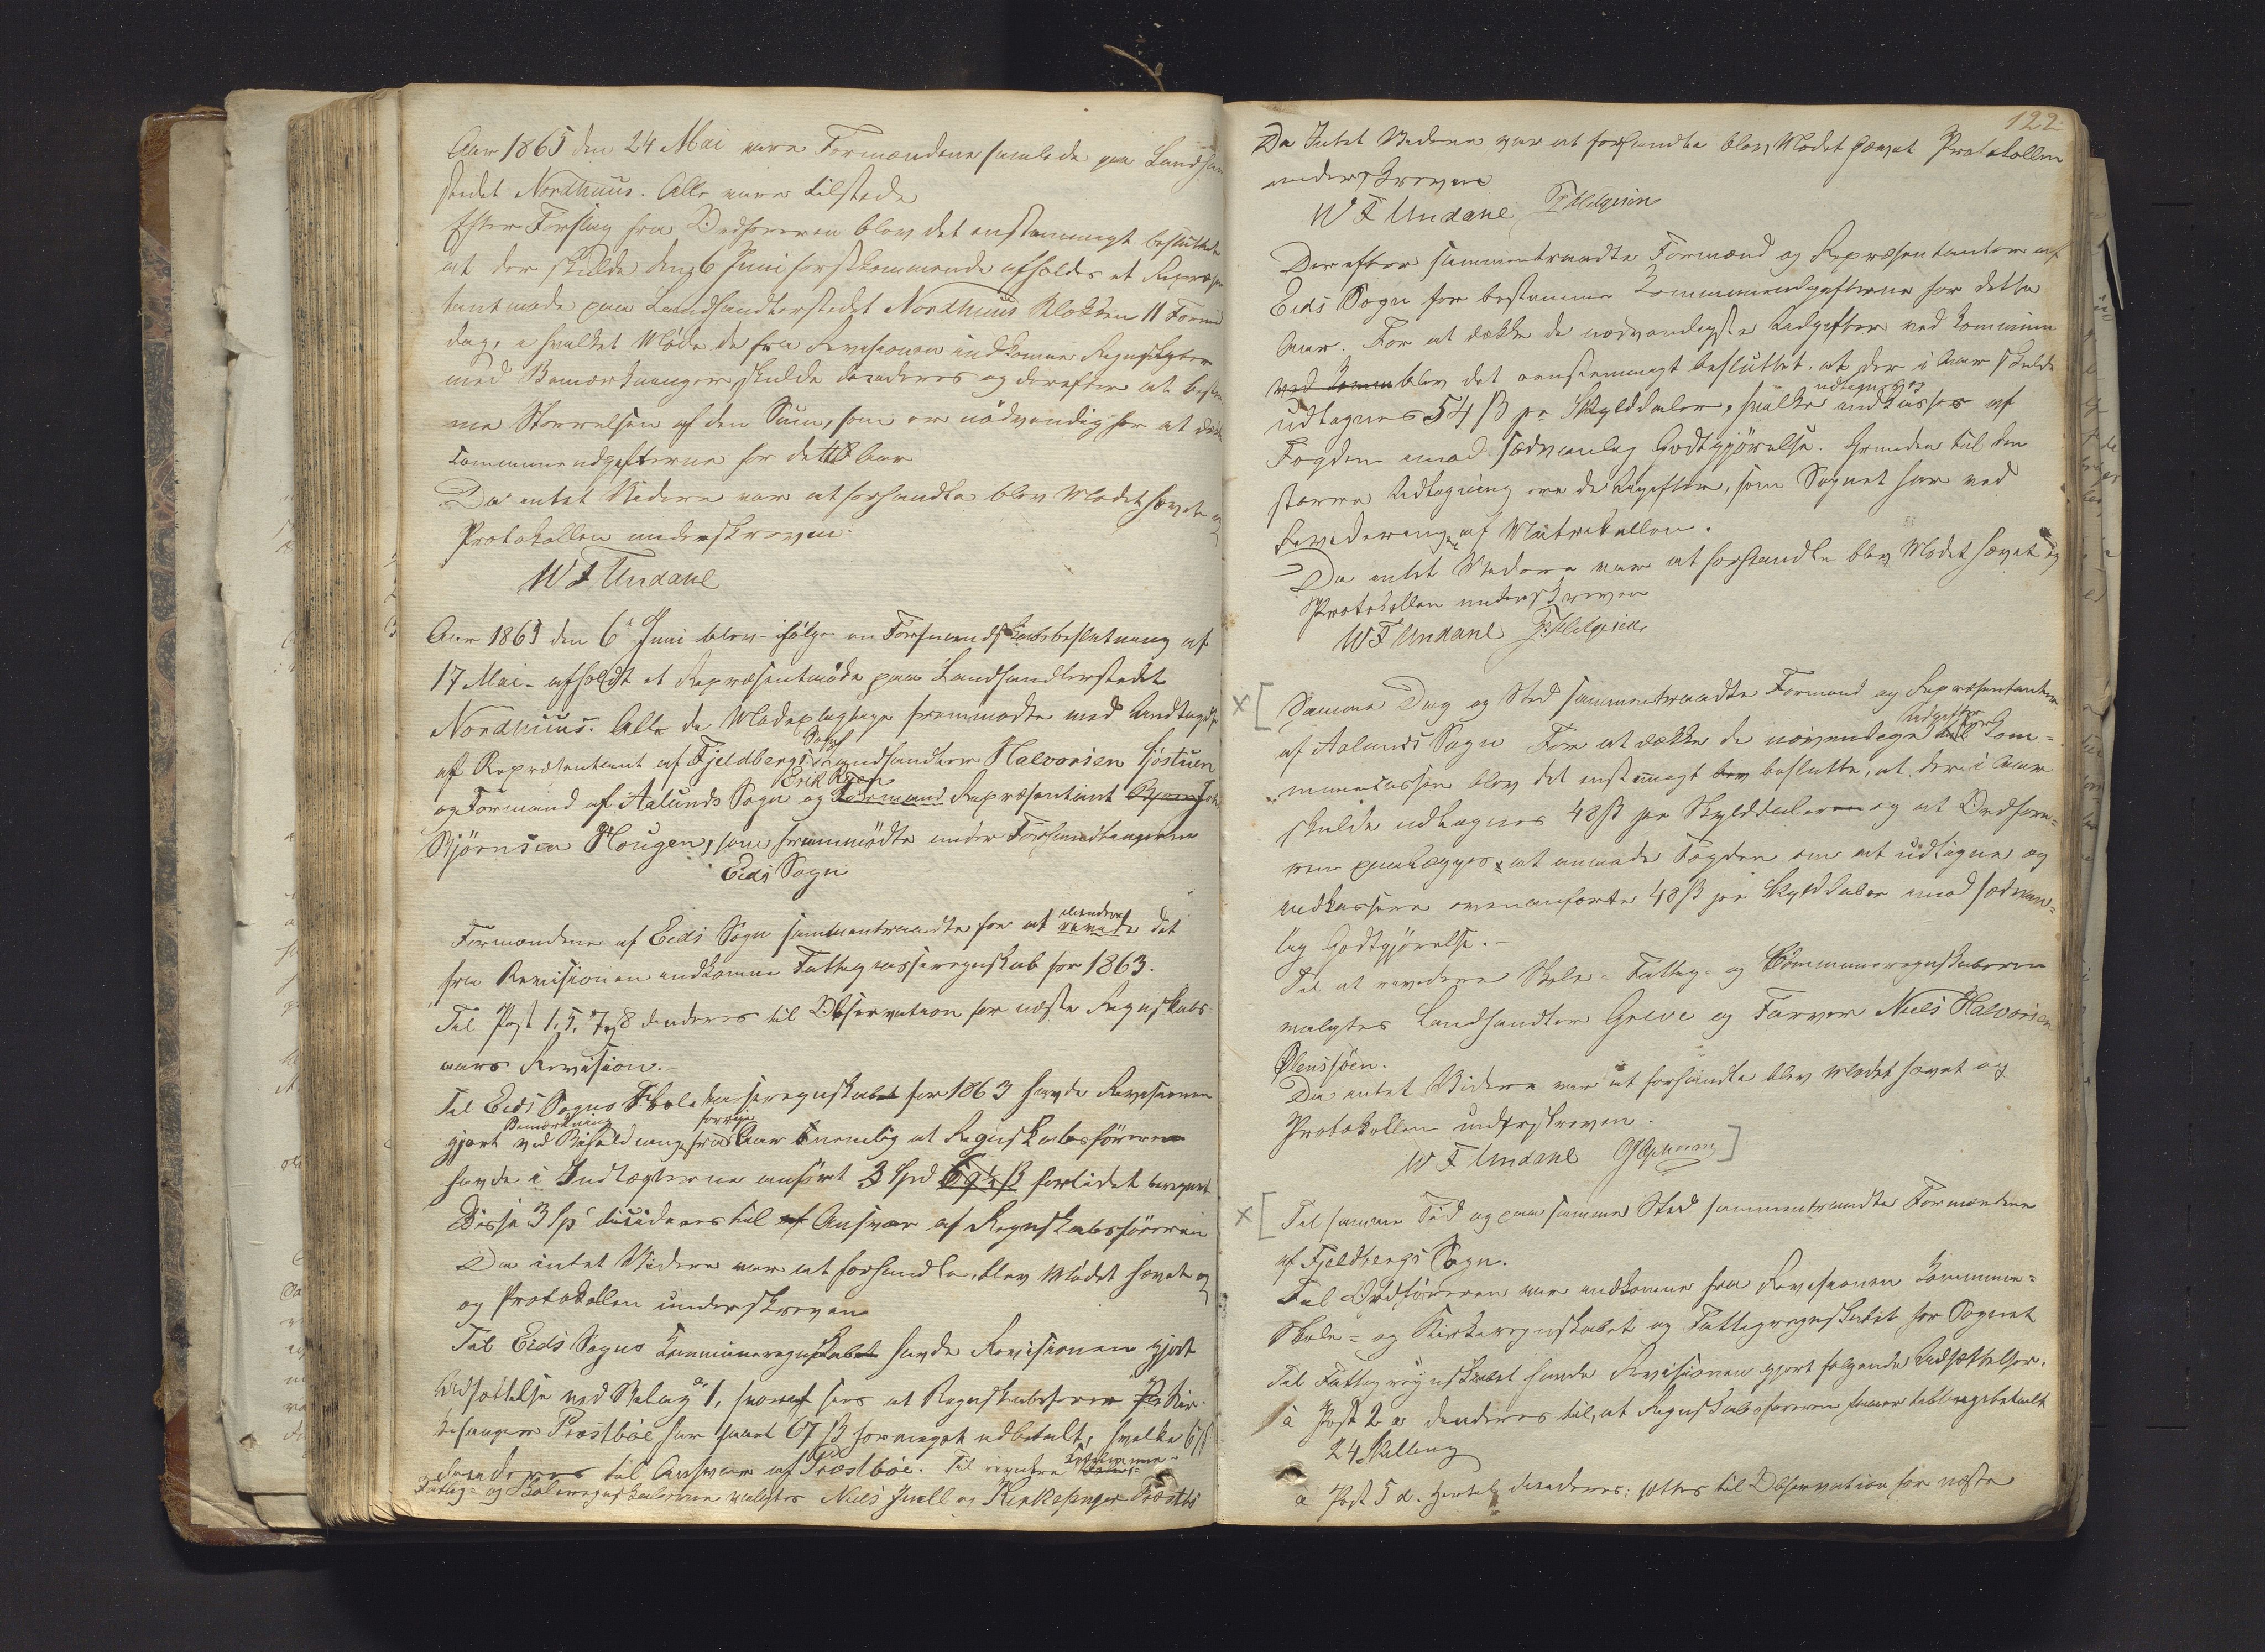 Aar 1865 den 24 Mai vare Formændene samlede paa Landhan
stedet Nordhuus. Alle vare tilstede
Efter Forslag fra Ordføreren blev det enstemmigt besluttet
at der skulde den 6 Juni førstkommende afholdes et Repræsen
tantmøde paa Landhandlerstedet Nordhuus Klokken 11 Formid
dag, i hvilket Møde de fra Revisionen indkomne Regnskaber
med Bemærkninger skulde desideres og derefter at bestem
me Størrelsen af den Sum, som er nødvendig for at dække
Communeudgifterne for dette Aar
Da intet Videre var at forhandle blev Mødet hævet og
Protokollen underskreven.
W F Undahl
Aar 1865 den 6 Juni blev ifølge en Formandskabsbeslutning af
17 Mai afholdt et Repræsentmøde paa Landhandlerstedet
Nordhuus. Alle de Mødepligtige fremmødte med Undtagelse
af Repræsentant af Fjeldbergs Sogn Landhandler Halvorsen Sjøstuen
og Formand af Aalunds Sogn Erik Røen og Formand Repræsentant
Bjørnsen Hougen, som fremmødte under Forhandlingerne
Eids Sogn
Formændene af Eids Sogn sammentraadte for at revide desidere det
fra Revisionen indkomne Fattigcasseregnskab for 1863.
Til Post 1, 5, 7 og 8 desideres til Observation for næste Regnskabs
aars Revision.
Til Eids Sogns Skolekasseregnskabet for 1863 havde Revisionen
gjort Bemærkning ved Beholdning fra forrige Aar nemlig at Regnskabsføreren
havde i Indtægterne anført 3 Spd for lidet beregnet
Disse 3 Sp desideres til Ansvar af Regnskabsføreren
Da intet Videre var at forhandle, blev Mødet hævet og
og Protokollen underskreven
Til Eids Sogns Kommuneregnskabet havde Revisionen gjort
Udsættelse ved Bilag 1, hvoraf sees at Regnskabsfører Kir
kesanger Præstbøe har faaet 67 ß formeget udbetalt, hvilke 67 ß
desideres til Ansvar af Præstbøe. Til revidere Kommune-
Fattig- og Skoleregnskaberne valgtes Niels Juell og Kirkesanger Præstbø
122
Da Intet Videre var at forhandle blev Mødet hævet Protokollen
underskreven
W F Undahl T Helgesen
Derefter sammentraadte Formænd og Repræsentanter af
Eids Sogn for bestemme Kommuneudgifterne for dette
Aar. For at dække de nødvendigste Udgifter ved Kommune
ved Komm blev det eenstemmigt besluttet, at der i Aar skulde
udlignes 54 ß pr Skylddaler, hvilke udlignes og indkasses af
Fogden imod sædvanlig Godtgjørelse. Grunden til den
større Udligning ere de Udgifter, som Sognet har ved
Revidering af Matrikullen.
Da intet Videre var at forhandle blev Mødet hævet og
Protokollen underskreven
W F Undahl T Helgesen
Samme Dag og Sted sammentraadte Formænd og Repræsentanter
af Aalunds Sogn For at dække de nøivendige Udgifter Kom=
munekassen blev det enstemmigt besluttet, at der i Aar
skulde udlignes 48 ß pr Skylddaler og at Ordføre=
ren paalægges at anmode Fogden om at udligne og
indkassere ovenanførte 48 ß pr Skylddaler imod sædvan=
lig Godtgjørelse.-
Til at revidere Skole- Fattig- og Communeregnskaberne
valgtes Landhandler Greve og Farver Niels Halvorsen
Ølenssjøen.
Da intet Videre var at forhandle blev Mødet hævet og
Protokollen underskreven.
W F Undahl
Til samme Tid og paa samme Sted sammentraadte Formændene
af Fjeldbergs Sogn.
Til Ordføreren var indkomne fra Revisionen Kommune=
Skole- og Kirkeregnskabet og Fattigregnskabet for Sognet
Til Fattigregnskabet havde Revisionen gjort følgende Udsættelser.
a Post 2 a desideres til, at Regnskabsføreren faaer tilbagebetalt
24 Skilling
a Post 5 d. desideres: sættes til Observation for næste